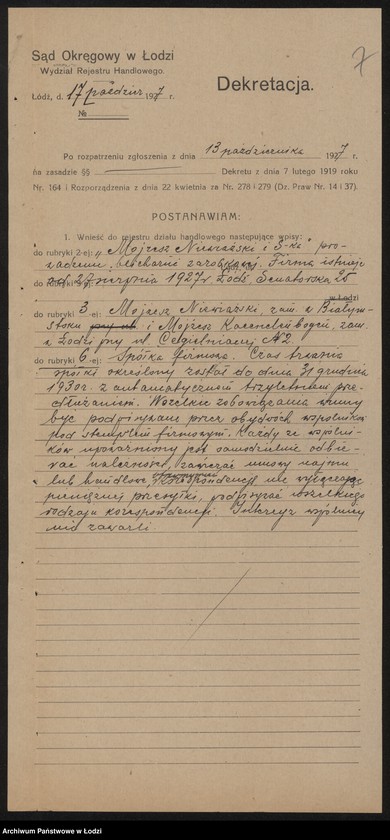 Sąd Okręgowy w Łodzi
Wydział Rejestru Handlowego.
7
Łódź, d. 17 paździer 1927 r.
№
Dekretacja.
Po rozpatrzeniu zgłoszenia z dnia 13 października 1927 r.
na zasadzie §§ Dekretu z dnia 7 lutego 1919 roku
Nr. 164 i Rozporządzenia z dnia 22 kwietnia za Nr. 278 i 279 (Dz. Praw Nr. 14 i 37).
POSTANAWIAM:
1. Wnieść do rejestru działu handlowego następujące wpisy:
do rubryki 2-ej: „Mojżesz Niewiażski i S-ka" pro-
wadzenie zarobkowej. Firma istnieje
od sierpnia 1927 r. Łódź, Senatorska 25
w Łodzi
do rubryki 3 ej: Mojżesz Niewiażski, zam. w Białym-
stoku i Mojżesz zam.
w Łodzi przy ul. Cegielnianej № 2.
do rubryki 6 ej: Spółka firmowa. Czas trwania
spółki określony został do dnia 31 grudnia
1930 r. z automatycznem trzyletniem prze-
dłużaniem. Wszelkie zobowiązania winny
być podpisywane przez obydwóch wspólników
pod stemplem firmowym. Każdy ze wspólni-
ków upoważniony jest samodzielnie odbie-
rać należności, zawierać umowy najmu
lub handlowe, korespondencję nie wyłączając
pieniężnej przesyłki, podpisywać wszelkiego
rodzaju korespondencji. Intercyz wspólnicy
nie zawarli.
Archiwum Państwowe w Łodzi